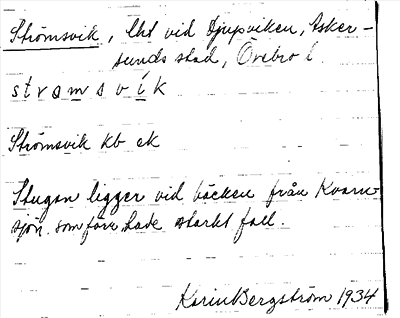 Strömsvik, lht vid Djupviken, Asker-
sunds stad, Örebro l
strömsvik
Strömsvik kb ek
Stugan ligger vid bäcken från Kvarn-
sjön. som förr hade starkt fall.
Karin Bergström 1934